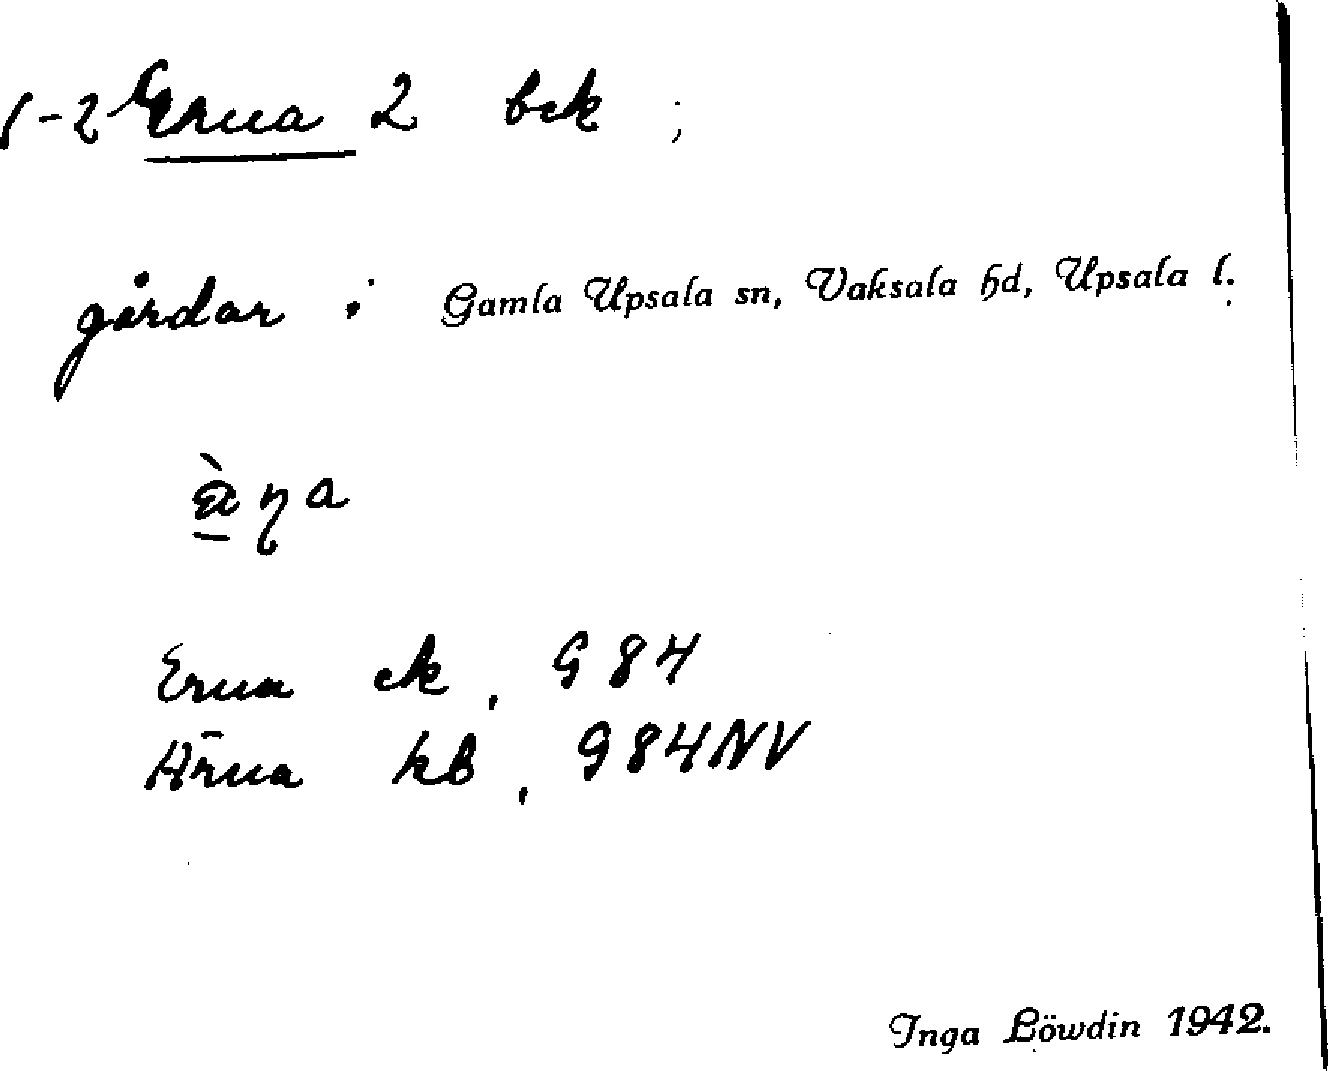 1-2 Erna 2 bek ;
gårdar i Gamla Upsala sn, Vaksala hd, Upsala l.
Erna ek, 984
Ärna kb, 984NV
Inga Löwdin 1942.